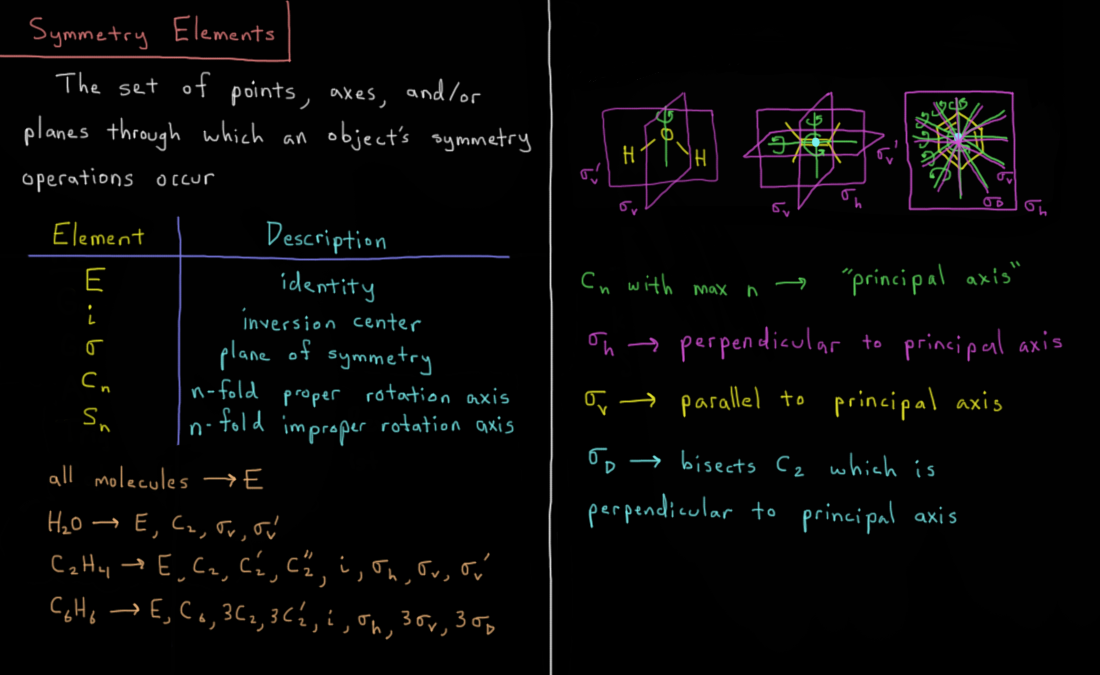 Symmetry Elements
The set of points, axes, and/or
planes through which an object's symmetry
operations occur
Element Description
E identity
i inversion center
σ plane of symmetry
Cₙ n-fold proper rotation axis
Sₙ n-fold improper rotation axis
all molecules → E
H₂O → E, C₂, σᵥ, σᵥ'
C₂H₄ → E, C₂, C₂', C₂'', i, σₕ, σᵥ, σᵥ'
C₆H₆ → E, C₆, 3C₂, 3C₂', i, σₕ, 3σᵥ, 3σ_D
O
H H
σᵥ'
σᵥ
σᵥ'
σₕ
σᵥ
σᵥ
σ_D
σₕ
Cₙ with max n → "principal axis"
σₕ → perpendicular to principal axis
σᵥ → parallel to principal axis
σ_D → bisects C₂ which is
perpendicular to principal axis